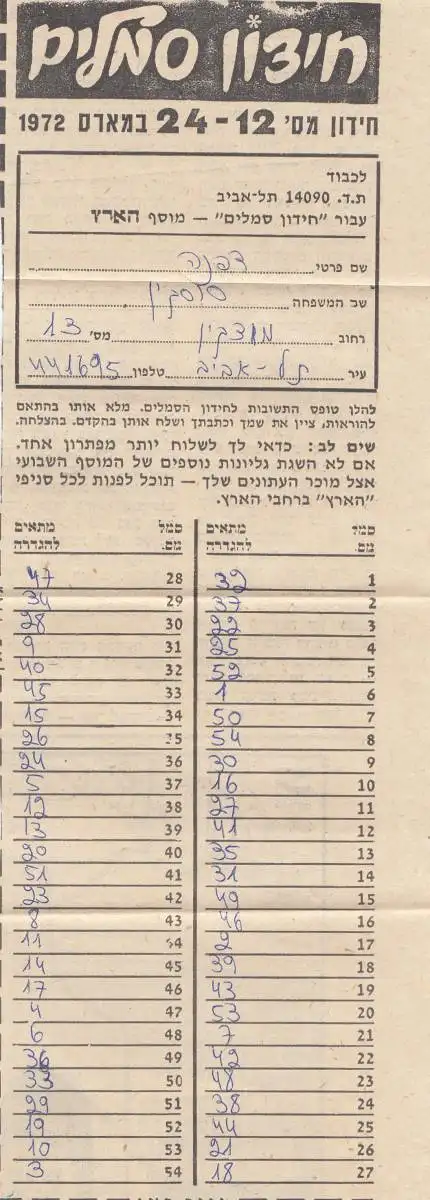 חידון סמלים
חידון מס' 12-24 במארס 1972
לכבוד
ת.ד. 14090 תל-אביב
עבור "חידון סמלים" — מוסף הארץ
שם פרטי דפנה
שם המשפחה סוסקין
רחוב מוצקין מס' 13
עיר תל-אביב טלפון 441695
להלן טופס התשובות לחידון הסמלים. מלא אותו בהתאם
להוראות, ציין את שמך וכתבתך ושלח אותן בהקדם. בהצלחה.
שים לב: כדאי לך לשלוח יותר מפתרון אחד.
אם לא השגת גליונות נוספים של המוסף השבועי
אצל מוכר העתונים שלך — תוכל לפנות לכל סניפי
"הארץ" ברחבי הארץ.
סמל מתאים
מס. להגדרה
1 32
2 37
3 22
4 25
5 52
6 1
7 50
8 54
9 30
10 16
11 27
12 41
13 35
14 31
15 49
16 46
17 2
18 39
19 43
20 53
21 7
22 42
23 48
24 38
25 44
26 21
27 18
סמל מתאים
מס. להגדרה
28 47
29 34
30 28
31 9
32 40
33 45
34 15
35 26
36 24
37 5
38 12
39 13
40 20
41 51
42 23
43 8
54 11
45 14
46 17
47 4
48 6
49 36
50 33
51 29
52 19
53 10
54 3